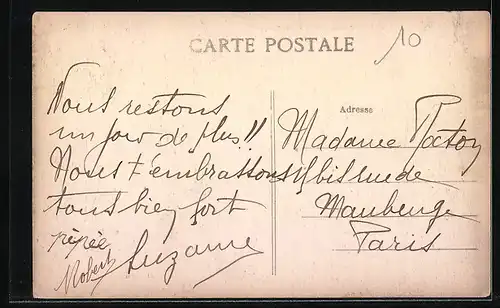 CARTE POSTALE
10
Nous restons
un jour de plus!!
Nous t'embrassons
tous bien fort
pépée
Robert Suzanne
Adresse
Madame
bis rue de
Maubeuge
Paris